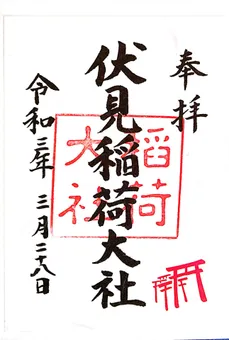 奉拝
伏見稲荷大社
稲荷
大社
令和三年三月二十八日